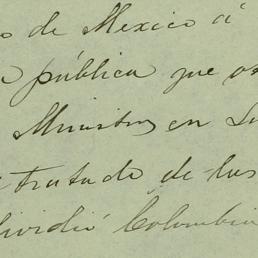 o de Mexico á
pública que
Ministros en
tratado de las
dividió Colombia